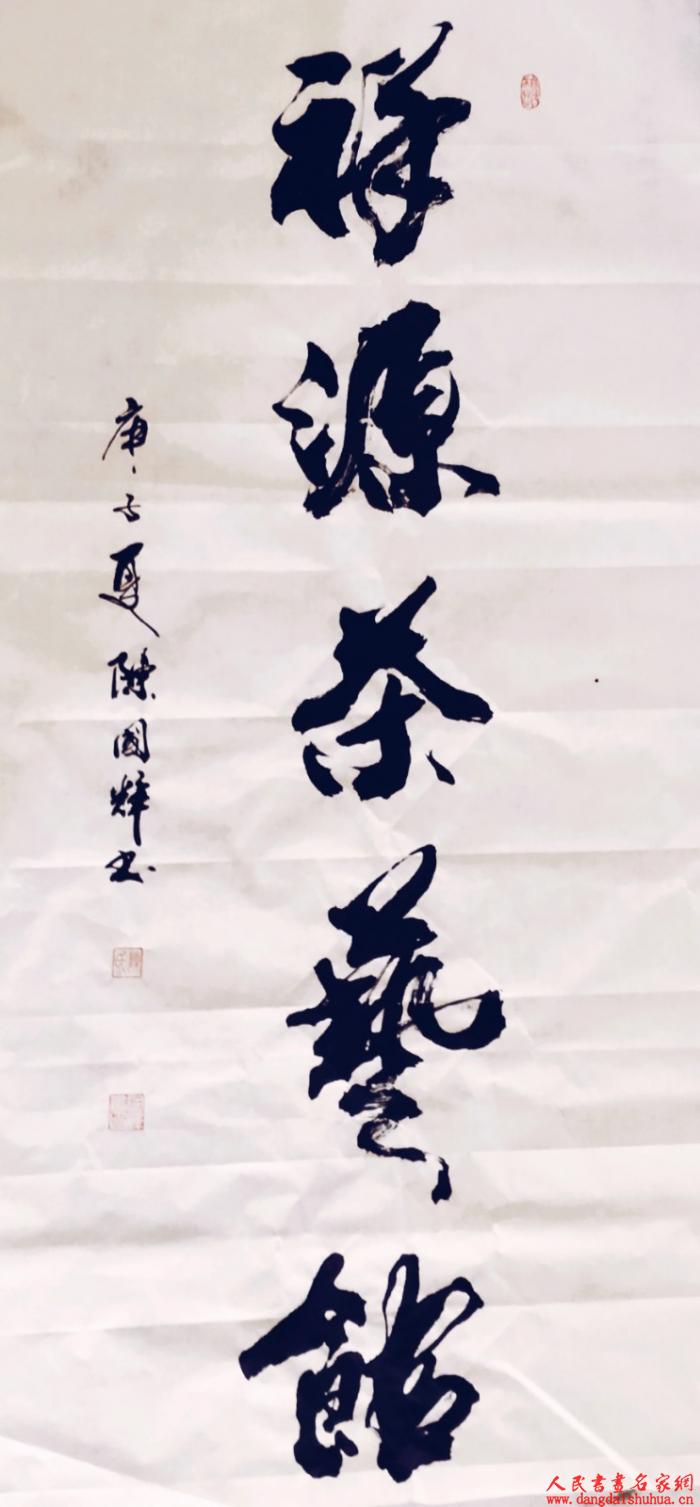 祥源茶藝館
庚子夏陳國輝書
人民書畫名家網
www.dangdaishuhua.cn